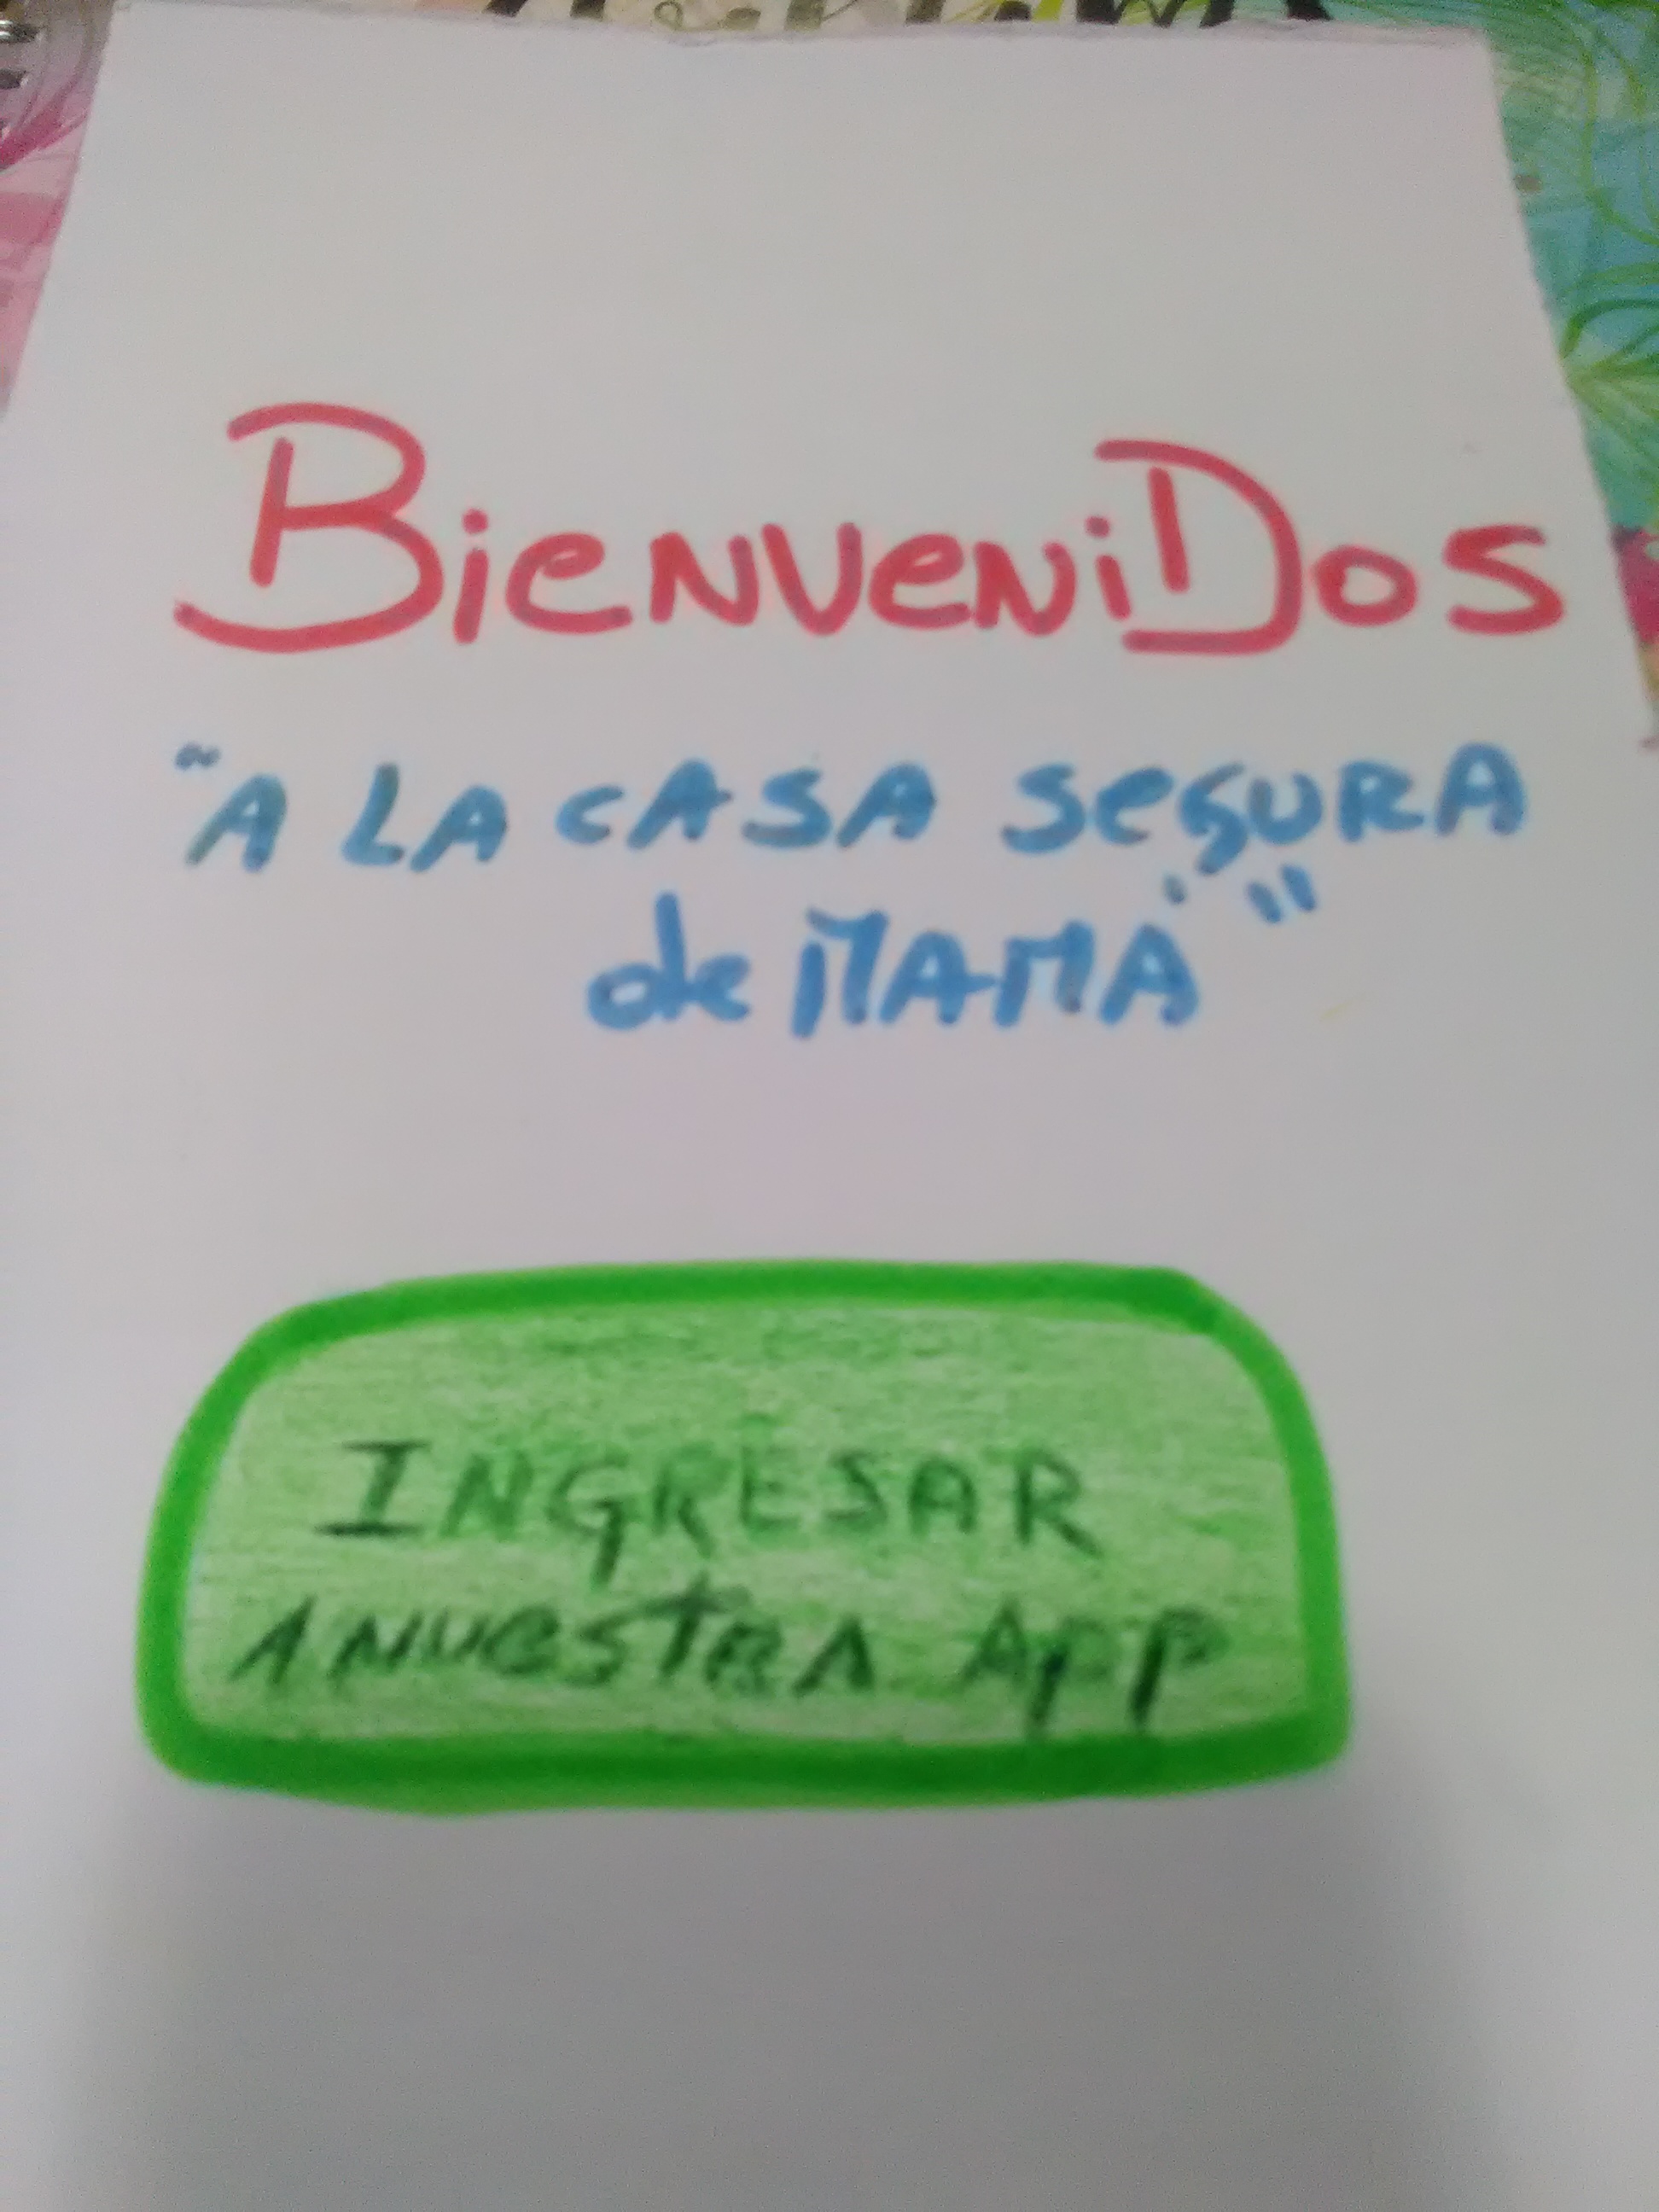 BienveniDos
"A LA CASA SeGURA
de MAMÁ"
INGRESAR
A NUeStRA App